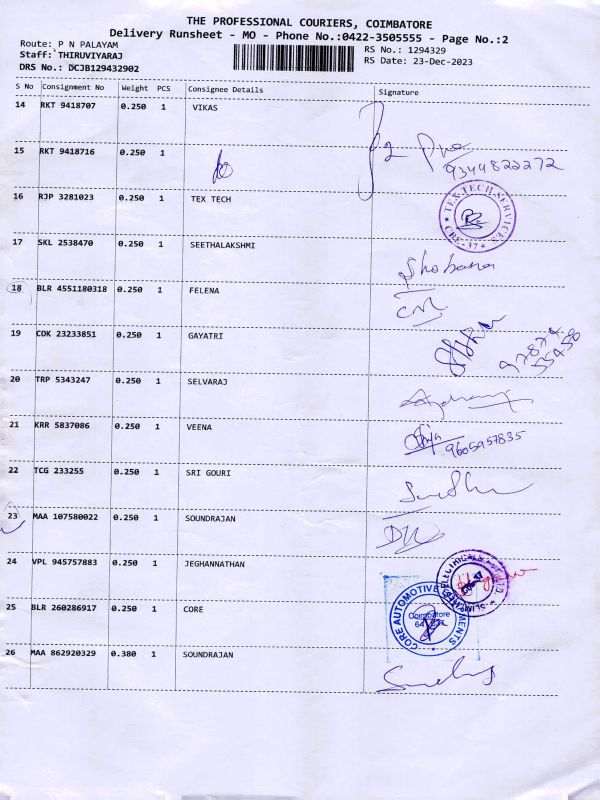 THE PROFESSIONAL COURIERS, COIMBATORE
Delivery Runsheet - MO - Phone No.:0422-3505555 - Page No.:2
Route: P N PALAYAM
RS No.: 1294329
Staff: THIRUVIYARAJ
RS Date: 23-Dec-2023
DRS No.: DCJB129432902
S No Consignment No Weight PCS Consignee Details Signature
14 RKT 9418707 0.250 1 VIKAS
15 RKT 9418716 0.250 1
9344822272
16 RJP 3281023 0.250 1 TEX TECH
TEX TECH SERVICES
CBE-37
17 SKL 2538470 0.250 1 SEETHALAKSHMI
Shobana
18 BLR 4551180318 0.250 1 FELENA
19 COK 23233851 0.250 1 GAYATRI
97874
55458
20 TRP 5343247 0.250 1 SELVARAJ
21 KRR 5837086 0.250 1 VEENA
9605957835
22 TCG 233255 0.250 1 SRI GOURI
23 MAA 107580022 0.250 1 SOUNDRAJAN
24 VPL 945757883 0.250 1 JEGHANNATHAN
25 BLR 260286917 0.250 1 CORE
CORE AUTOMOTIVE
Coimbatore
26 MAA 862920329 0.380 1 SOUNDRAJAN